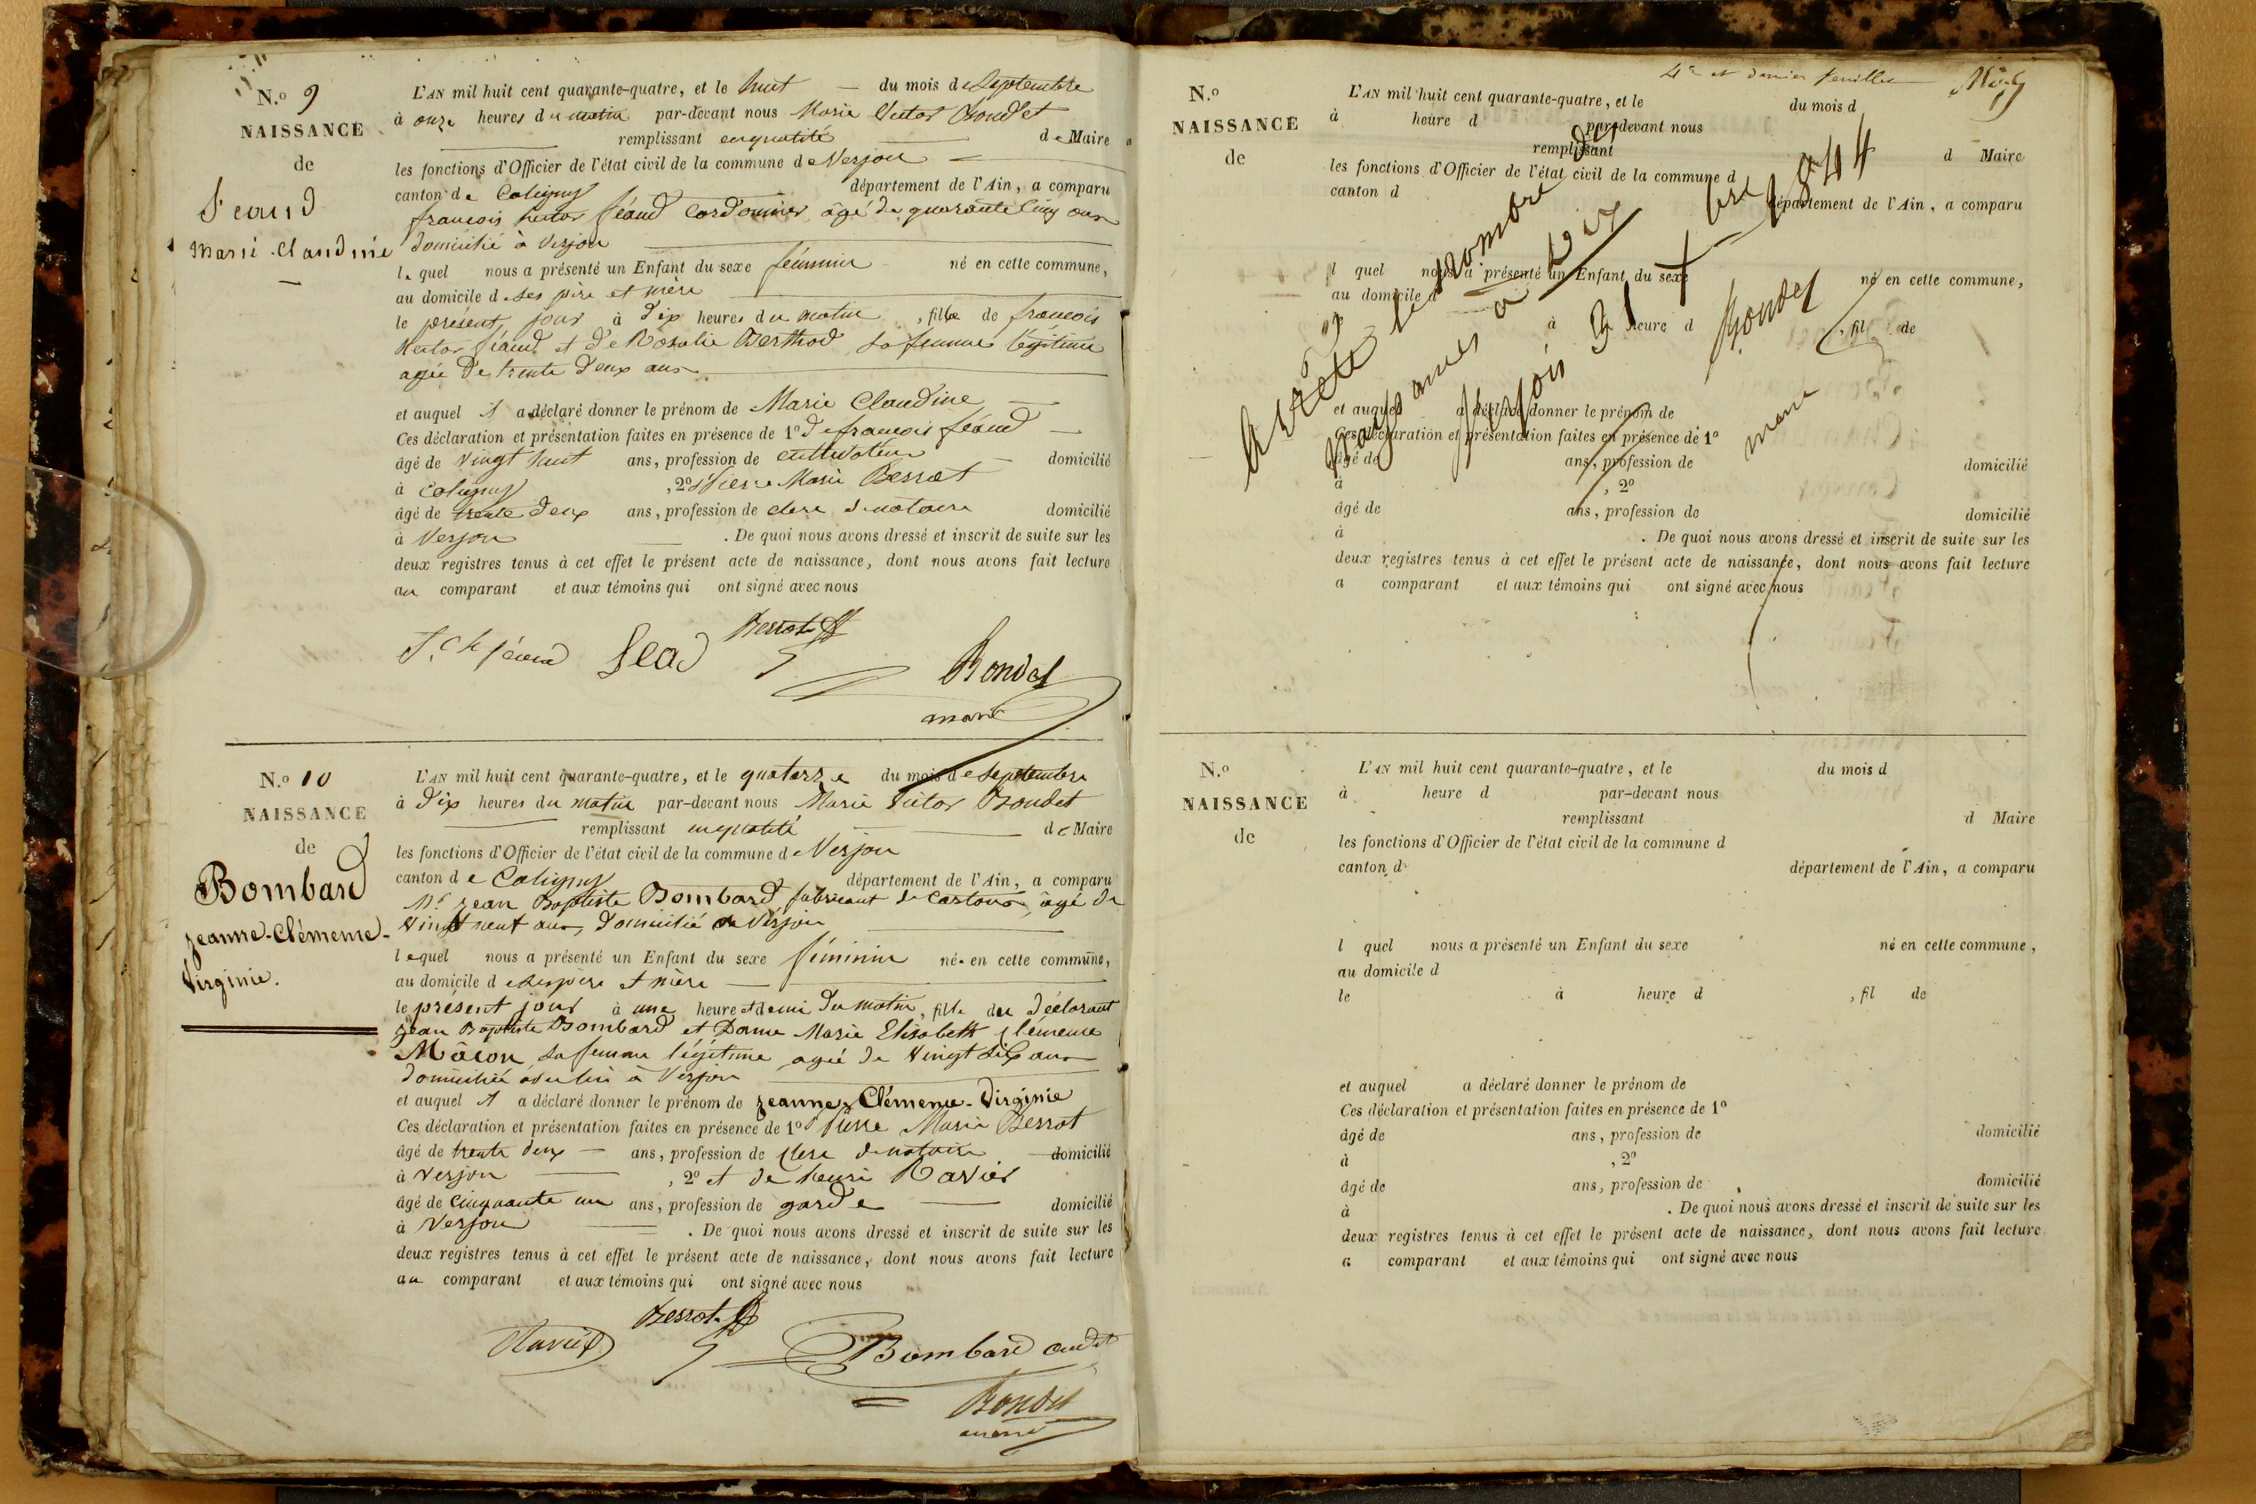 N.º 9
NAISSANCE
de
Féaud
Marie Claudine
L'AN mil huit cent quarante-quatre, et le huit du mois de Septembre
à onze heures du matin par-devant nous Marie Victor Bondet
remplissant en qualité de Maire
les fonctions d'Officier de l'état civil de la commune de Verjon
canton de Coligny département de l'Ain, a comparu
françois hector féaud Cordonnier âgé de quarante cinq ans
domicilié à Verjon
lequel nous a présenté un Enfant du sexe féminin né en cette commune,
au domicile de ses père et mère
le présent jour à dix heures du matin, fille de françois
hector féaud et de Rosalie Berthod sa femme légitime
agée de trente deux ans
et auquel il a déclaré donner le prénom de Marie Claudine
Ces déclaration et présentation faites en présence de 1º de françois féaud
âgé de vingt huit ans, profession de cultivateur domicilié
à Coligny, 2º Pierre Marie Berrot
âgé de trente deux ans, profession de clerc de notaire domicilié
à Verjon. De quoi nous avons dressé et inscrit de suite sur les
deux registres tenus à cet effet le présent acte de naissance, dont nous avons fait lecture
au comparant et aux témoins qui ont signé avec nous
Berrot
féaud Bondet
maire
N.º 10
NAISSANCE
de
Bombard
Jeanne-Clémence-
Virginie.
L'AN mil huit cent quarante-quatre, et le quatorze du mois de Septembre
à dix heures du matin par-devant nous Marie Victor Bondet
remplissant en qualité de Maire
les fonctions d'Officier de l'état civil de la commune de Verjon
canton de Coligny département de l'Ain, a comparu
Mr Jean Baptiste Bombard fabricant de cartons, âgé de
vingt neuf ans, domicilié à Verjon
lequel nous a présenté un Enfant du sexe féminin né en cette commune,
au domicile de ses père et mère
le présent jour à une heure et demi du matin, fille du déclarant
Jean Baptiste Bombard et Dame Marie Elisabeth Clémence
Mâcon sa femme légitime agée de vingt six ans
domiciliée avec lui à Verjon
et auquel il a déclaré donner le prénom de Jeanne-Clémence-Virginie
Ces déclaration et présentation faites en présence de 1º Pierre Marie Berrot
âgé de trente deux ans, profession de clerc de notaire domicilié
à Verjon, 2º et de henri Ravier
âgé de cinquante un ans, profession de garde domicilié
à Verjon. De quoi nous avons dressé et inscrit de suite sur les
deux registres tenus à cet effet le présent acte de naissance, dont nous avons fait lecture
au comparant et aux témoins qui ont signé avec nous
Berrot
Ravier Bombard
Bondet
maire
4e et dernier feuillet
N.º
NAISSANCE
de
L'AN mil huit cent quarante-quatre, et le du mois d
à heure d par-devant nous
remplissant d Maire
les fonctions d'Officier de l'état civil de la commune d
canton d département de l'Ain, a comparu
l quel nous a présenté un Enfant du sexe né en cette commune,
au domicile d
à heure d, fil de
et auquel a déclaré donner le prénom de
Ces déclaration et présentation faites en présence de 1º
âgé de ans, profession de domicilié
à, 2º
âgé de ans, profession de domicilié
à. De quoi nous avons dressé et inscrit de suite sur les
deux registres tenus à cet effet le présent acte de naissance, dont nous avons fait lecture
a comparant et aux témoins qui ont signé avec nous
Arrêté le nombre de
naissances à dix
Verjon 31 1844
Bondet
maire
N.º
NAISSANCE
de
L'AN mil huit cent quarante-quatre, et le du mois d
à heure d par-devant nous
remplissant d Maire
les fonctions d'Officier de l'état civil de la commune d
canton d département de l'Ain, a comparu
l quel nous a présenté un Enfant du sexe né en cette commune,
au domicile d
le à heure d, fil de
et auquel a déclaré donner le prénom de
Ces déclaration et présentation faites en présence de 1º
âgé de ans, profession de domicilié
à, 2º
âgé de ans, profession de domicilié
à. De quoi nous avons dressé et inscrit de suite sur les
deux registres tenus à cet effet le présent acte de naissance, dont nous avons fait lecture
a comparant et aux témoins qui ont signé avec nous